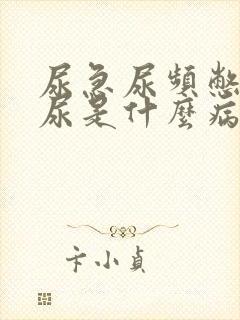 尿急尿頻憋
尿是什麼病
卞小貞